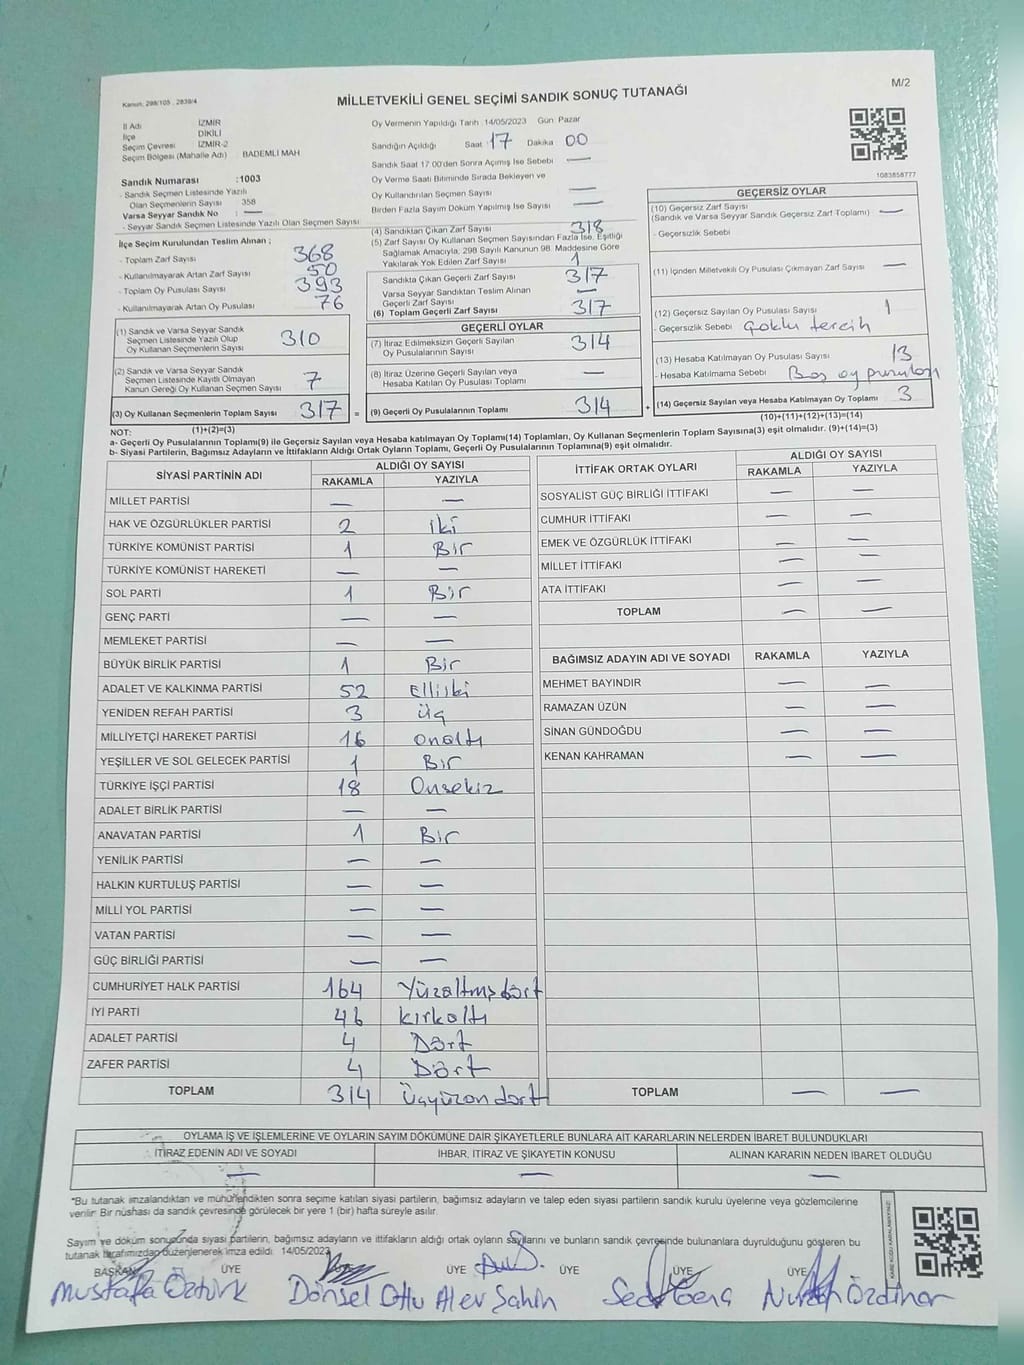 M/2
Kanun: 298/105 , 2839/4
MİLLETVEKİLİ GENEL SEÇİMİ SANDIK SONUÇ TUTANAĞI
İl Adı İZMİR
İlçe DİKİLİ
Seçim Çevresi İZMİR-2
Seçim Bölgesi (Mahalle Adı) BADEMLİ MAH
Oy Vermenin Yapıldığı Tarih 14/05/2023 Gün Pazar
Sandığın Açıldığı Saat 17 Dakika 00
Sandık Saat 17.00'den Sonra Açımış İse Sebebi —
Oy Verme Saati Bitiminde Sırada Bekleyen ve
Oy Kullandırılan Seçmen Sayısı —
Birden Fazla Sayım Döküm Yapılmış İse Sayısı —
1083858777
Sandık Numarası :1003
- Sandık Seçmen Listesinde Yazılı
Olan Seçmenlerin Sayısı 358
Varsa Seyyar Sandık No : —
- Seyyar Sandık Seçmen Listesinde Yazılı Olan Seçmen Sayısı
İlçe Seçim Kurulundan Teslim Alınan ;
- Toplam Zarf Sayısı 368
- Kullanılmayarak Artan Zarf Sayısı 50
- Toplam Oy Pusulası Sayısı 393
- Kullanılmayarak Artan Oy Pusulası 76
(1) Sandık ve Varsa Seyyar Sandık
Seçmen Listesinde Yazılı Olup
Oy Kullanan Seçmenlerin Sayısı 310
(2) Sandık ve Varsa Seyyar Sandık
Seçmen Listesinde Kayıtlı Olmayan
Kanun Gereği Oy Kullanan Seçmen Sayısı 7
(3) Oy Kullanan Seçmenlerin Toplam Sayısı 317 =
(1)+(2)=(3)
(4) Sandıktan Çıkan Zarf Sayısı 318
(5) Zarf Sayısı Oy Kullanan Seçmen Sayısından Fazla İse, Eşitliği
Sağlamak Amacıyla, 298 Sayılı Kanunun 98. Maddesine Göre
Yakılarak Yok Edilen Zarf Sayısı 1
Sandıkta Çıkan Geçerli Zarf Sayısı 317
Varsa Seyyar Sandıktan Teslim Alınan
Geçerli Zarf Sayısı —
(6) Toplam Geçerli Zarf Sayısı 317
GEÇERLİ OYLAR
(7) İtiraz Edilmeksizin Geçerli Sayılan
Oy Pusulalarının Sayısı 314
(8) İtiraz Üzerine Geçerli Sayılan veya
Hesaba Katılan Oy Pusulası Toplamı —
(9) Geçerli Oy Pusulalarının Toplamı 314 +
GEÇERSİZ OYLAR
(10) Geçersiz Zarf Sayısı
(Sandık ve Varsa Seyyar Sandık Geçersiz Zarf Toplamı) —
- Geçersizlik Sebebi
(11) İçinden Milletvekili Oy Pusulası Çıkmayan Zarf Sayısı —
(12) Geçersiz Sayılan Oy Pusulası Sayısı 1
- Geçersizlik Sebebi Çoklu tercih
(13) Hesaba Katılmayan Oy Pusulası Sayısı
- Hesaba Katılmama Sebebi Boş oy pusulası
(14) Geçersiz Sayılan veya Hesaba Katılmayan Oy Toplamı 3
(10)+(11)+(12)+(13)=(14)
NOT:
a- Geçerli Oy Pusulalarının Toplamı(9) ile Geçersiz Sayılan veya Hesaba katılmayan Oy Toplamı(14) Toplamları, Oy Kullanan Seçmenlerin Toplam Sayısına(3) eşit olmalıdır. (9)+(14)=(3)
b- Siyasi Partilerin, Bağımsız Adayların ve İttifakların Aldığı Oyların Toplamı, Geçerli Oy Pusulalarının Toplamına(9) eşit olmalıdır.
SİYASİ PARTİNİN ADI ALDIĞI OY SAYISI
RAKAMLA YAZIYLA
MİLLET PARTİSİ — —
HAK VE ÖZGÜRLÜKLER PARTİSİ 2 iki
TÜRKİYE KOMÜNİST PARTİSİ 1 Bir
TÜRKİYE KOMÜNİST HAREKETİ — —
SOL PARTİ 1 Bir
GENÇ PARTİ — —
MEMLEKET PARTİSİ — —
BÜYÜK BİRLİK PARTİSİ 1 Bir
ADALET VE KALKINMA PARTİSİ 52 Elliiki
YENİDEN REFAH PARTİSİ 3 üç
MİLLİYETÇİ HAREKET PARTİSİ 16 onaltı
YEŞİLLER VE SOL GELECEK PARTİSİ 1 Bir
TÜRKİYE İŞÇİ PARTİSİ 18 Onsekiz
ADALET BİRLİK PARTİSİ — —
ANAVATAN PARTİSİ 1 Bir
YENİLİK PARTİSİ — —
HALKIN KURTULUŞ PARTİSİ — —
MİLLİ YOL PARTİSİ — —
VATAN PARTİSİ — —
GÜÇ BİRLİĞİ PARTİSİ — —
CUMHURİYET HALK PARTİSİ 164 Yüzaltmışdört
İYİ PARTİ 46 kırkaltı
ADALET PARTİSİ 4 Dört
ZAFER PARTİSİ 4 Dört
TOPLAM 314 Üçyüzondört
İTTİFAK ORTAK OYLARI ALDIĞI OY SAYISI
RAKAMLA YAZIYLA
SOSYALİST GÜÇ BİRLİĞİ İTTİFAKI — —
CUMHUR İTTİFAKI — —
EMEK VE ÖZGÜRLÜK İTTİFAKI — —
MİLLET İTTİFAKI — —
ATA İTTİFAKI — —
TOPLAM — —
BAĞIMSIZ ADAYIN ADI VE SOYADI RAKAMLA YAZIYLA
MEHMET BAYINDIR — —
RAMAZAN ÜZÜN — —
SİNAN GÜNDOĞDU — —
KENAN KAHRAMAN — —
TOPLAM — —
OYLAMA İŞ VE İŞLEMLERİNE VE OYLARIN SAYIM DÖKÜMÜNE DAİR ŞİKAYETLERLE BUNLARA AİT KARARLARIN NELERDEN İBARET BULUNDUKLARI
İTİRAZ EDENİN ADI VE SOYADI İHBAR, İTİRAZ VE ŞİKAYETİN KONUSU ALINAN KARARIN NEDEN İBARET OLDUĞU
— — —
"Bu tutanak imzalandıktan ve mühürlendikten sonra seçime katılan siyasi partilerin, bağımsız adayların ve talep eden siyasi partilerin sandık kurulu üyelerine veya gözlemcilerine
verilir. Bir nüshası da sandık çevresinde görülecek bir yere 1 (bir) hafta süreyle asılır.
Sayım ve döküm sonucunda siyasi partilerin, bağımsız adayların ve ittifakların aldığı ortak oyların sayılarını ve bunların sandık çevresinde bulunanlara duyrulduğunu gösteren bu
tutanak tarafımızdan düzenlenerek imza edildi. 14/05/2023
BAŞKAN ÜYE ÜYE ÜYE ÜYE ÜYE
Mustafa Öztürk Dönsel Otlu Alev Şahin Genç Özdinar